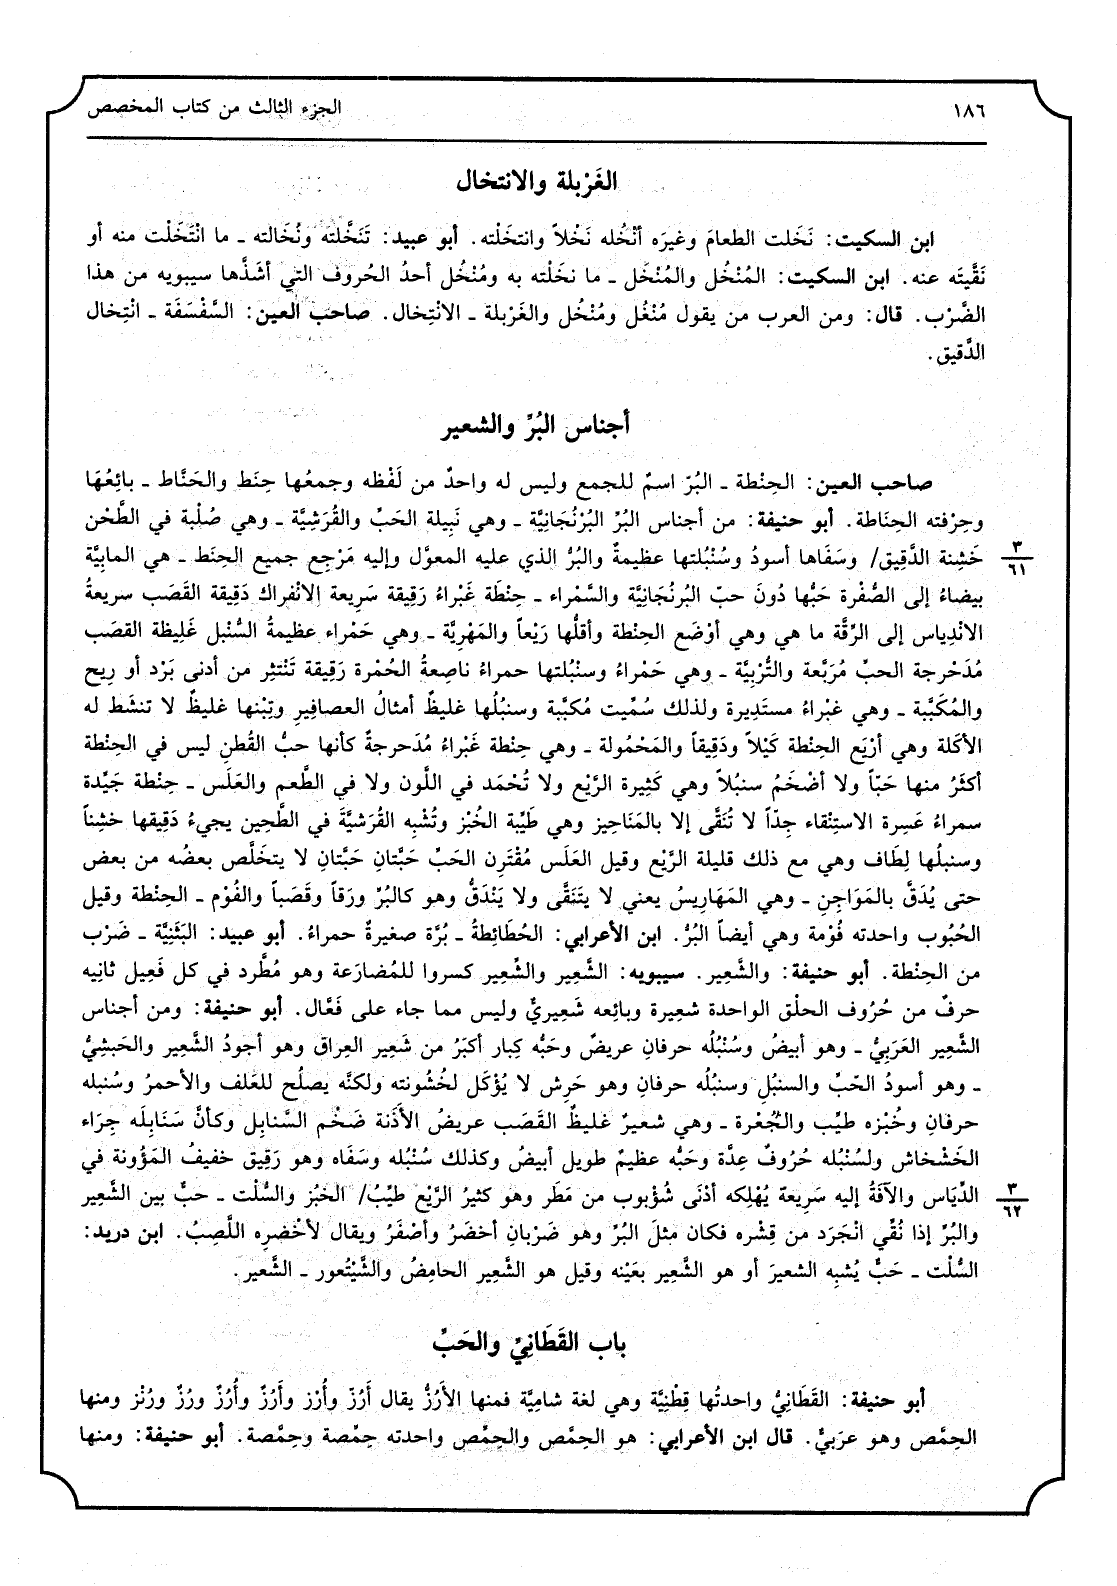 ١٨٦
الجزء الثالث من كتاب المخصص
الغَرْبلة والانتخال
ابن السكيت: نَخَلت الطعامَ وغيرَه أنْخُله نَخْلاً وانتخَلْته. أبو عبيد: تَنَخَّلته ونُخَالته ـ ما انْتَخَلْت منه أو
نَقَّيتَه عنه. ابن السكيت: المُنْخُل والمُنْخَل ـ ما نخَلْته به ومُنْخُل أحدُ الحُروف التي أشَذَّها سيبويه من هذا
الضَّرْب. قال: ومن العرب من يقول مُنْغُل ومُنْخُل والغَرْبلة ـ الانْتِخال. صاحب العين: السَّفْسَفَة ـ انْتِخال
الدَّقيق.
أجناس البُرِّ والشعير
صاحب العين: الحِنْطة ـ البُرّ اسمٌ للجمع وليس له واحدٌ من لَفْظه وجمعُها حِنَط والحَنَّاط ـ بائِعُهَا
وحِرْفته الحِنَاطة. أبو حنيفة: من أجناس البُرِّ البُرْنُجَانِيَّة ـ وهي نَبِيلة الحَبِّ والقُرَشِيَّة ـ وهي صُلْبة في الطَّحْن
خَشِنة الدَّقيق/ وسَفَاها أسودُ وسُنْبُلتها عظيمةٌ والبُرُّ الذي عليه المعوَّل وإليه مَرْجِع جميع الحِنَط ـ هي المابِيَّة
٣
٦١
بيضاءُ إلى الصُّفْرة حَبُّها دُونَ حبّ البُرنْجَانِيَّة والسَّمْراء ـ حِنطَة غَبْراءُ رَقِيقة سَرِيعة الانْفراك دَقِيقة القَصَب سريعةُ
الانْدِياس إلى الرِّقَّة ما هي وهي أوْضَع الحِنْطة وأقلُّها رَيْعاً والمَهْرِيَّة ـ وهي حَمْراء عظيمةُ السُّنْبل غَلِيظة القصَب
مُدَحْرجة الحبِّ مُرَبَّعة والتُّرْبِيَّة ـ وهي حَمْراءُ وسنْبُلتها حمراءُ ناصعةُ الحُمْرة رَقِيقة تَنْتثِر من أدنى بَرْد أو رِيح
والمُكَبَّبة ـ وهي غبْراءُ مستَدِيرة ولذلك سُمِّيت مُكبَّبة وسنبُلُها غليظٌ أمثالُ العصافِيرِ وتِبْنها غليظٌ لا تنشَط له
الأكَلة وهي أرْيَع الحِنْطة كَيْلاً ودَقِيقاً والمَحْمُولة ـ وهي حِنْطة غَبْراءُ مُدَحرجةٌ كأنها حبُّ القُطن ليس في الحِنْطة
أكثَرُ منها حَبّاً ولا أضْخَمُ سنبُلاً وهي كَثِيرة الرَّيْع ولا تُحْمَد في اللَّون ولا في الطَّعم والعَلَس ـ حِنْطة جَيِّدة
سمراءُ عَسِرة الاستِنْقاء جِدّاً لا تُنَقَّى إلا بالمَنَاحِيز وهي طَيِّبة الخُبْز وتُشْبِه القُرَشيَّةَ في الطَّحِين يجيءُ دَقِيقها خشِناً
وسنبلُها لِطَاف وهي مع ذلك قليلة الرَّيْع وقيل العَلَس مُقْتَرِن الحَبِّ حَبَّتانِ حَبَّتانِ لا يتخَلَّص بعضُه من بعض
حتى يُدَقَّ بالمَوَاجِنِ ـ وهي المَهَارِيسُ يعني لا يَتَنَقَّى ولا يَنْدَقُّ وهو كالبُرِّ ورَقاً وقَصَباً والفُوْم ـ الحِنْطة وقيل
الحُبُوب واحدته فُوْمة وهي أيضاً البُرُّ. ابن الأعرابي: الحُطَائِطةُ ـ بُرَّة صغيرةٌ حمراءُ. أبو عبيد: البَثَنِيَّة ـ ضَرْب
من الحِنْطة. أبو حنيفة: والشَّعير. سيبويه: الشَّعِير والشِّعِير كسروا للمُضارَعة وهو مُطَّرد في كل فَعِيل ثانِيه
حرفٌ من حُرُوف الحلْق الواحدة شعِيرة وبائِعه شَعِيريٌّ وليس مما جاء على فَعَّال. أبو حنيفة: ومن أجناس
الشَّعِير العَرَبِيُّ ـ وهو أبيضُ وسُنْبُلُه حرفانِ عريضٌ وحَبُّه كِبار أكبَرُ من شَعِير العِراق وهو أجودُ الشَّعِير والحَبشِيُّ
ـ وهو أسودُ الحّبِّ والسنبُلِ وسنبلُه حرفان وهو حَرِش لا يُؤكَل لخُشُونته ولكنَّه يصلُح للعَلف والأحمرُ وسُنبله
حرفانِ وخُبْزه طيِّب والثُّعْرة ـ وهي شعيرٌ غليظٌ القَصَب عريضُ الأَذَنة ضَخْم السَّنابِل وكأنَّ سَنَابِلَه جِرَاء
الخَشْخاش ولسُنْبُله حُرُوفٌ عِدَّة وحَبُّه عظيمٌ طويل أبيضُ وكذلك سُنْبُله وسَفَاه وهو رَقِيق خفيفُ المَؤُونة في
الدِّيَاس والآفَةُ إليه سَرِيعة يُهْلِكه أدْنَى شُؤْبوب من مَطَر وهو كثيرُ الرَّيْع طيِّبُ/ الخُبْز والسُّلْت ـ حبٌّ بين الشَّعِير
٣
٦٢
والبُرِّ إذا نُقِّي انْجَرَد من قِشْره فكان مثلَ البُرِّ وهو ضَرْبانِ أخضَرُ وأصْفَرُ ويقال لأخْضرِه اللَّصِبُ. ابن دريد:
السُّلْت ـ حَبٌّ يُشبِه الشعيرَ أو هو الشَّعِير بعَيْنه وقيل هو الشَّعِير الحامِضُ والشَّيْتَعور ـ الشَّعير.
باب القَطَانِيِّ والحَبِّ
أبو حنيفة: القَطَانيُّ واحدتُها قِطْنِيَّة وهي لغة شامِيَّة فمنها الأَرُزُّ يقال أَرُزّ وأُرْز وأَرُزٌ وأُرُزٌ ورُزٌ ورُنْز ومنها
الحِمَّص وهو عرَبيٌّ. قال ابن الأعرابي: هو الحِمَّص والحِمِّص واحدته حِمَّصة وحِمِّصة. أبو حنيفة: ومنها